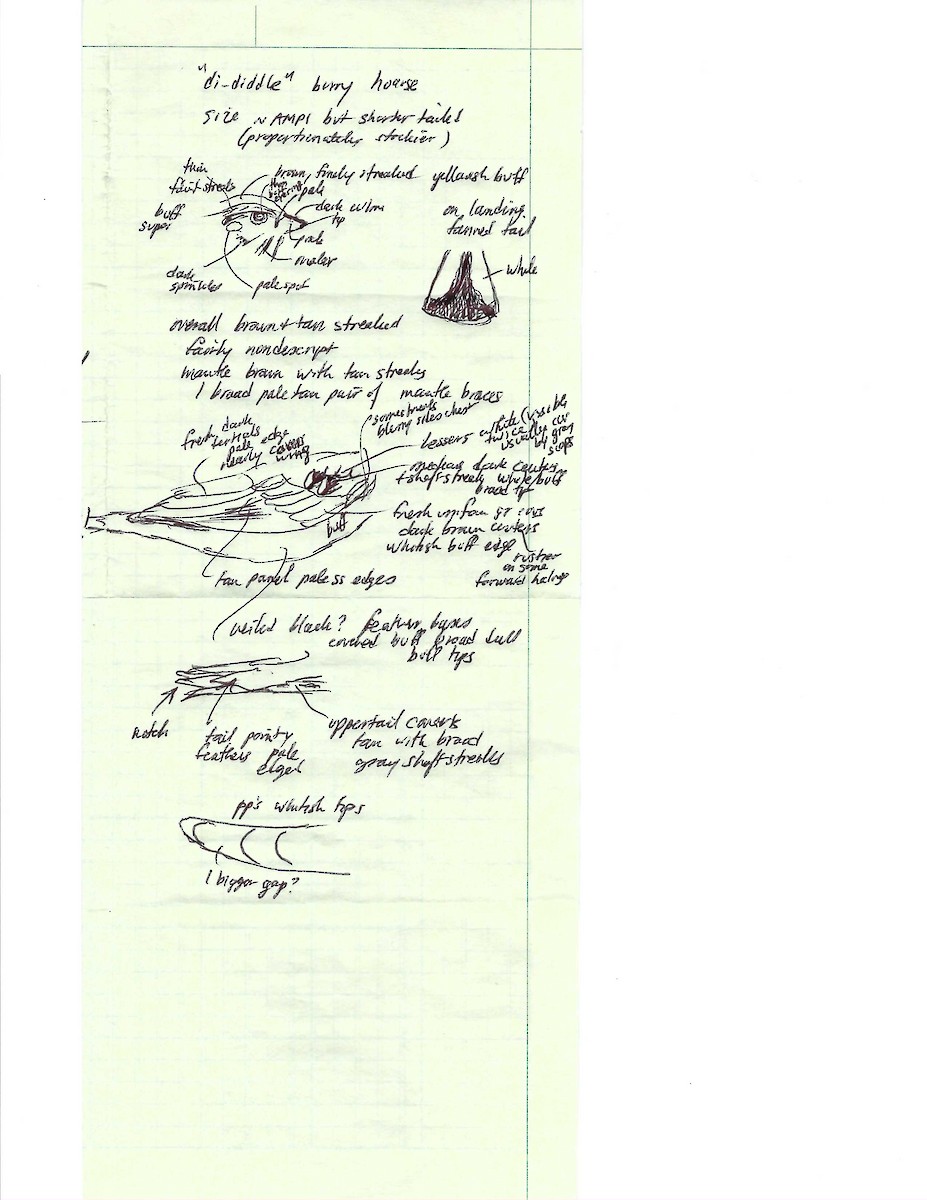 "di-diddle" burry hoarse
size ~ AMPI but shorter tailed
(proportionately stockier)
thin
faint streaks
brown, finely streaked yellowish buff
thin
pale
buff
super
dark culm
tip
pale
malar
dark
sprinkles
pale spot
on landing
fanned tail
white
overall brown + tan streaked
fairly nondescript
mantle brown with tan streaks
1 broad pale tan pair of mantle braces
some streaks
blurry sides chest
dark
fresh tertials
pale edge
nearly covers
wing
Lessers white (visible
twice
usually cov
by gray
scaps
medians dark centers
+ shaft streak white/buff
broad tip
fresh uniform gr covs
dark brown centers
whitish buff edge
rustier
on some
forward halves
buff
tan panel pale ss edges
veiled black? feather bases
covered buff broad full
buff tips
notch
tail pointy
feathers pale
edged
uppertail coverts
tan with broad
gray shaft streaks
pp's whitish tips
1 bigger gap?